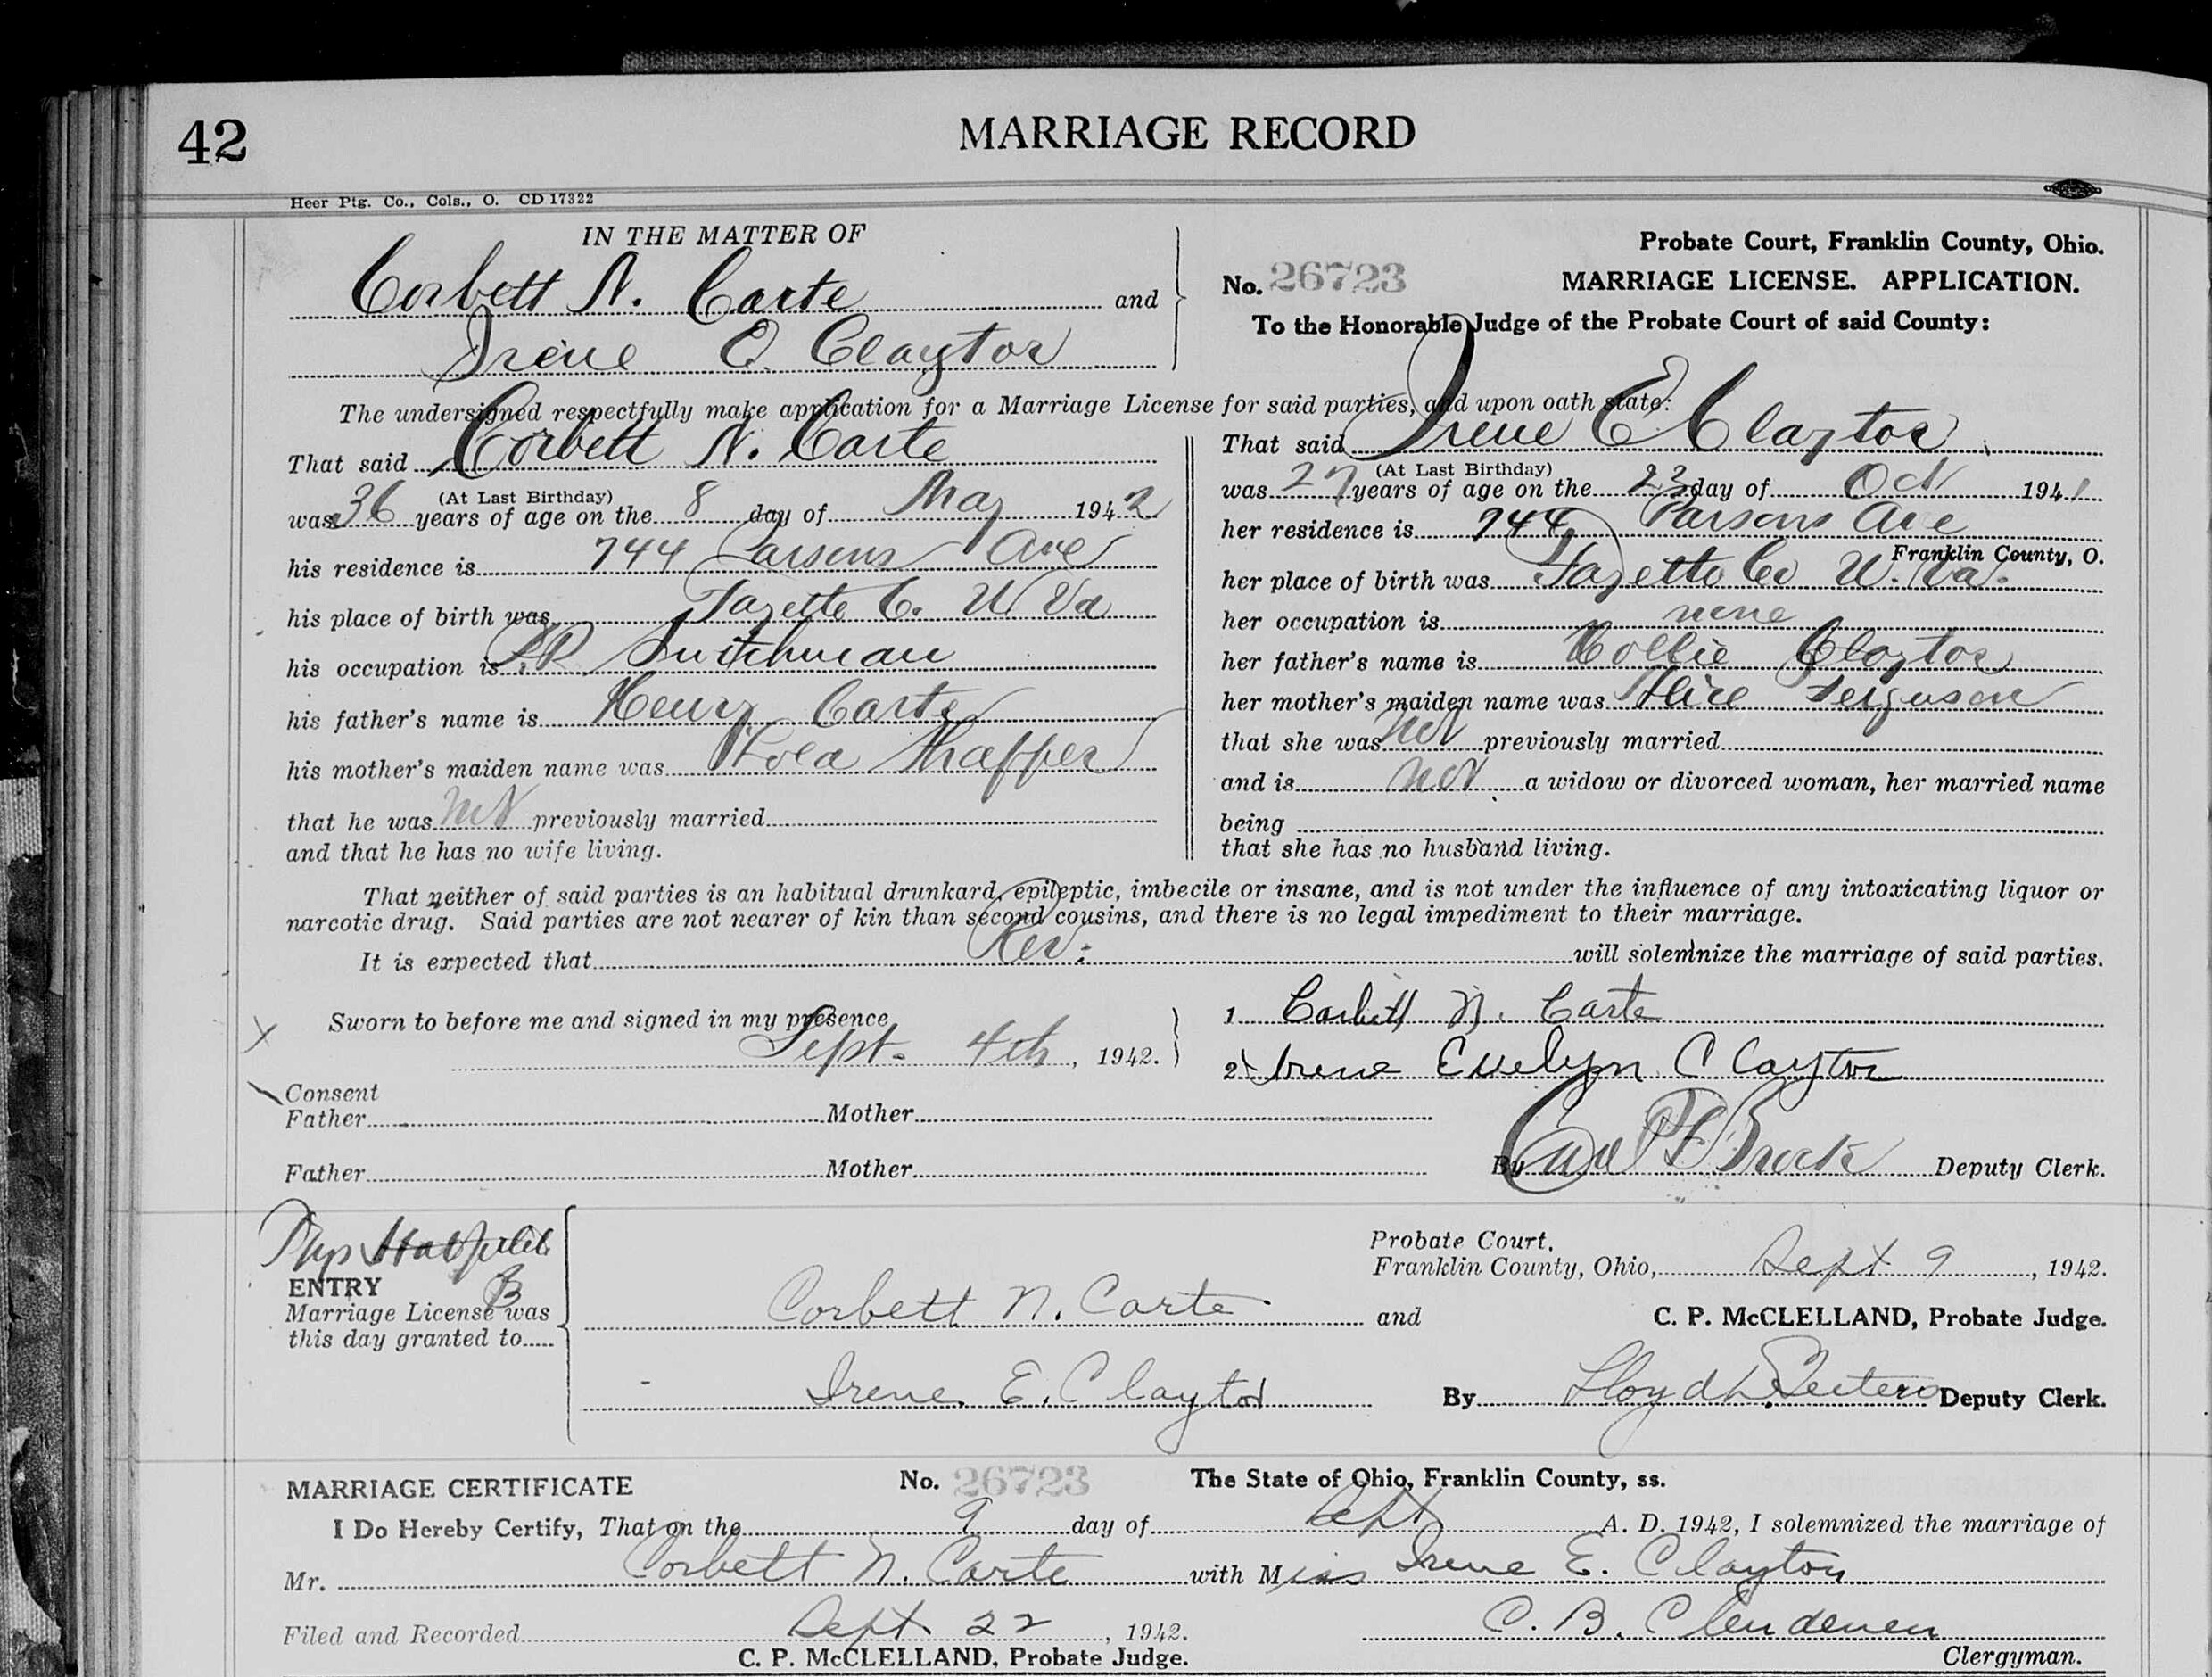 42
MARRIAGE RECORD
Heer Ptg. Co., Cols., O. CD 17322
IN THE MATTER OF
Corbett N. Carte and
Irene E. Claytor
Probate Court, Franklin County, Ohio.
No. 26723 MARRIAGE LICENSE. APPLICATION.
To the Honorable Judge of the Probate Court of said County:
The undersigned respectfully make application for a Marriage License for said parties, and upon oath state:
That said Corbett N. Carte
(At Last Birthday)
was 36 years of age on the 8 day of May 1942
his residence is 744 Parsons Ave
his place of birth was Fayette C. W Va
his occupation is RR Switchman
his father's name is Henry Carte
his mother's maiden name was
that he was not previously married
and that he has no wife living.
That said Irene E Claytor
(At Last Birthday)
was 27 years of age on the 23 day of Oct 1941
her residence is 744 Parsons Ave
Franklin County, O.
her place of birth was Fayette Co W. Va.
her occupation is none
her father's name is Hollie Claytor
her mother's maiden name was Alice Ferguson
that she was not previously married
and is not a widow or divorced woman, her married name
being
that she has no husband living.
That neither of said parties is an habitual drunkard, epileptic, imbecile or insane, and is not under the influence of any intoxicating liquor or
narcotic drug. Said parties are not nearer of kin than second cousins, and there is no legal impediment to their marriage.
It is expected that Rev. will solemnize the marriage of said parties.
Sworn to before me and signed in my presence
Sept. 4th, 1942.
1 Corbett N. Carte
2 Irene Evelyn Claytor
Consent
Father Mother
Father Mother
By Brock Deputy Clerk.
Hatfield
ENTRY B
Marriage License was
this day granted to
Corbett N. Carte and
Irene E. Claytor
Probate Court,
Franklin County, Ohio, Sept 9, 1942.
C. P. McCLELLAND, Probate Judge.
By Lloyd Deputy Clerk.
MARRIAGE CERTIFICATE No. 26723 The State of Ohio, Franklin County, ss.
I Do Hereby Certify, That on the 9 day of Sept A. D. 1942, I solemnized the marriage of
Mr. Corbett N. Carte with Miss Irene E. Clayton
Filed and Recorded Sept. 22, 1942. C. B. Clendenen
C. P. McCLELLAND, Probate Judge. Clergyman.